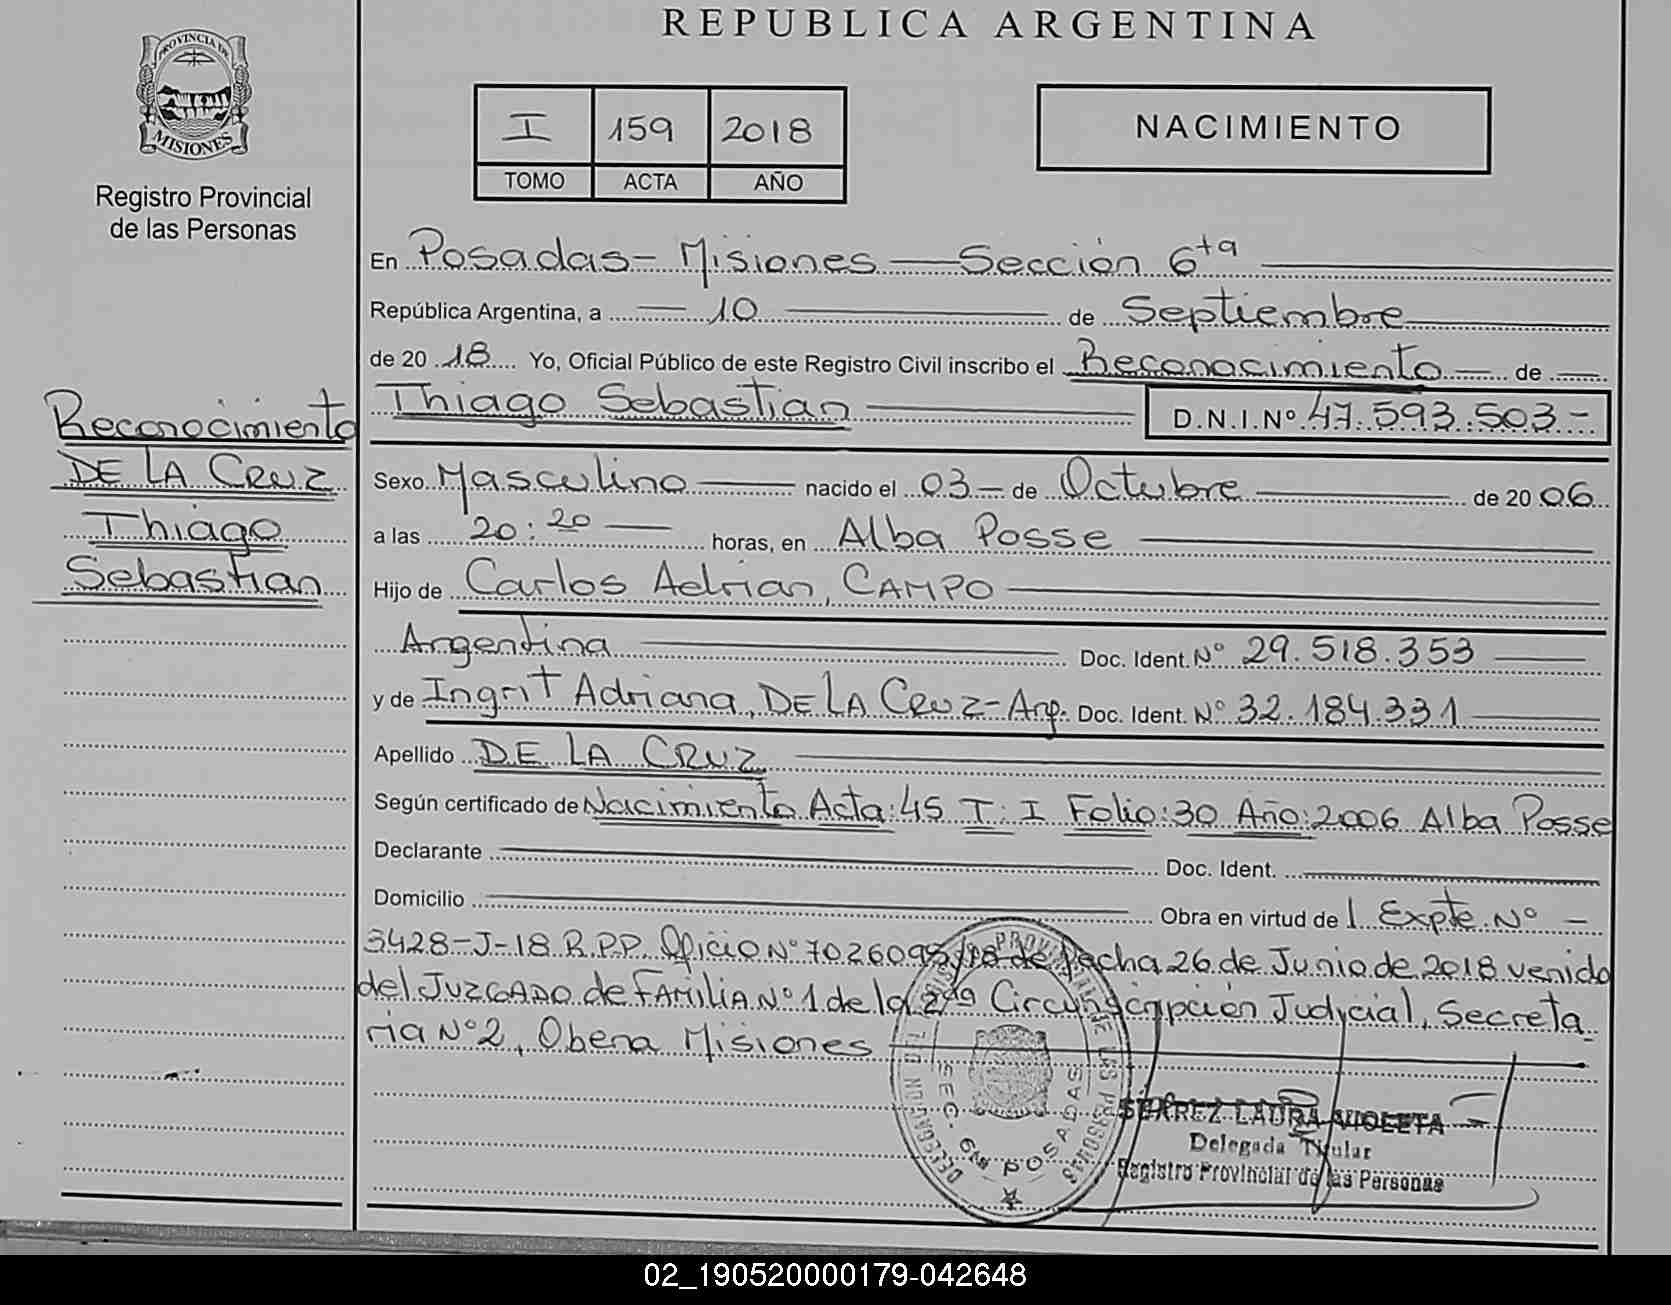 REPUBLICA ARGENTINA
PROVINCIA DE
MISIONES
Registro Provincial
de las Personas
I 159 2018
TOMO ACTA AÑO
NACIMIENTO
En Posadas - Misiones — Sección 6ta
República Argentina, a — 10 — de Septiembre
de 20 18 Yo, Oficial Público de este Registro Civil inscribo el Reconocimiento — de —
Thiago Sebastian — D.N.I.Nº 47.593.503-
Reconocimiento
DE LA CRUZ
Thiago
Sebastian
Sexo Masculino — nacido el 03 — de Octubre — de 20 06
a las 20:20 — horas, en Alba Posse
Hijo de Carlos Adrian, CAMPO
Argentina — Doc. Ident. Nº 29.518.353
y de Ingrit Adriana, DE LA CRUZ - Arg. Doc. Ident. Nº 32.184.331
Apellido DE LA CRUZ
Según certificado de Nacimiento Acta: 45 T: I Folio: 30 Año: 2006 Alba Posse
Declarante — Doc. Ident.
Domicilio — Obra en virtud de Expte. Nº -
3428-J-18 R.P.P. Oficio Nº de fecha 26 de Junio de 2018 venido
del JUZGADO de FAMILIA Nº 1 de la 2da Circunscripción Judicial, Secreta
ria Nº 2, Obera Misiones
SEC. 6ta POSADAS
SUAREZ LAURA VIOLETA
Delegada Titular
Registro Provincial de las Personas
02_190520000179-042648